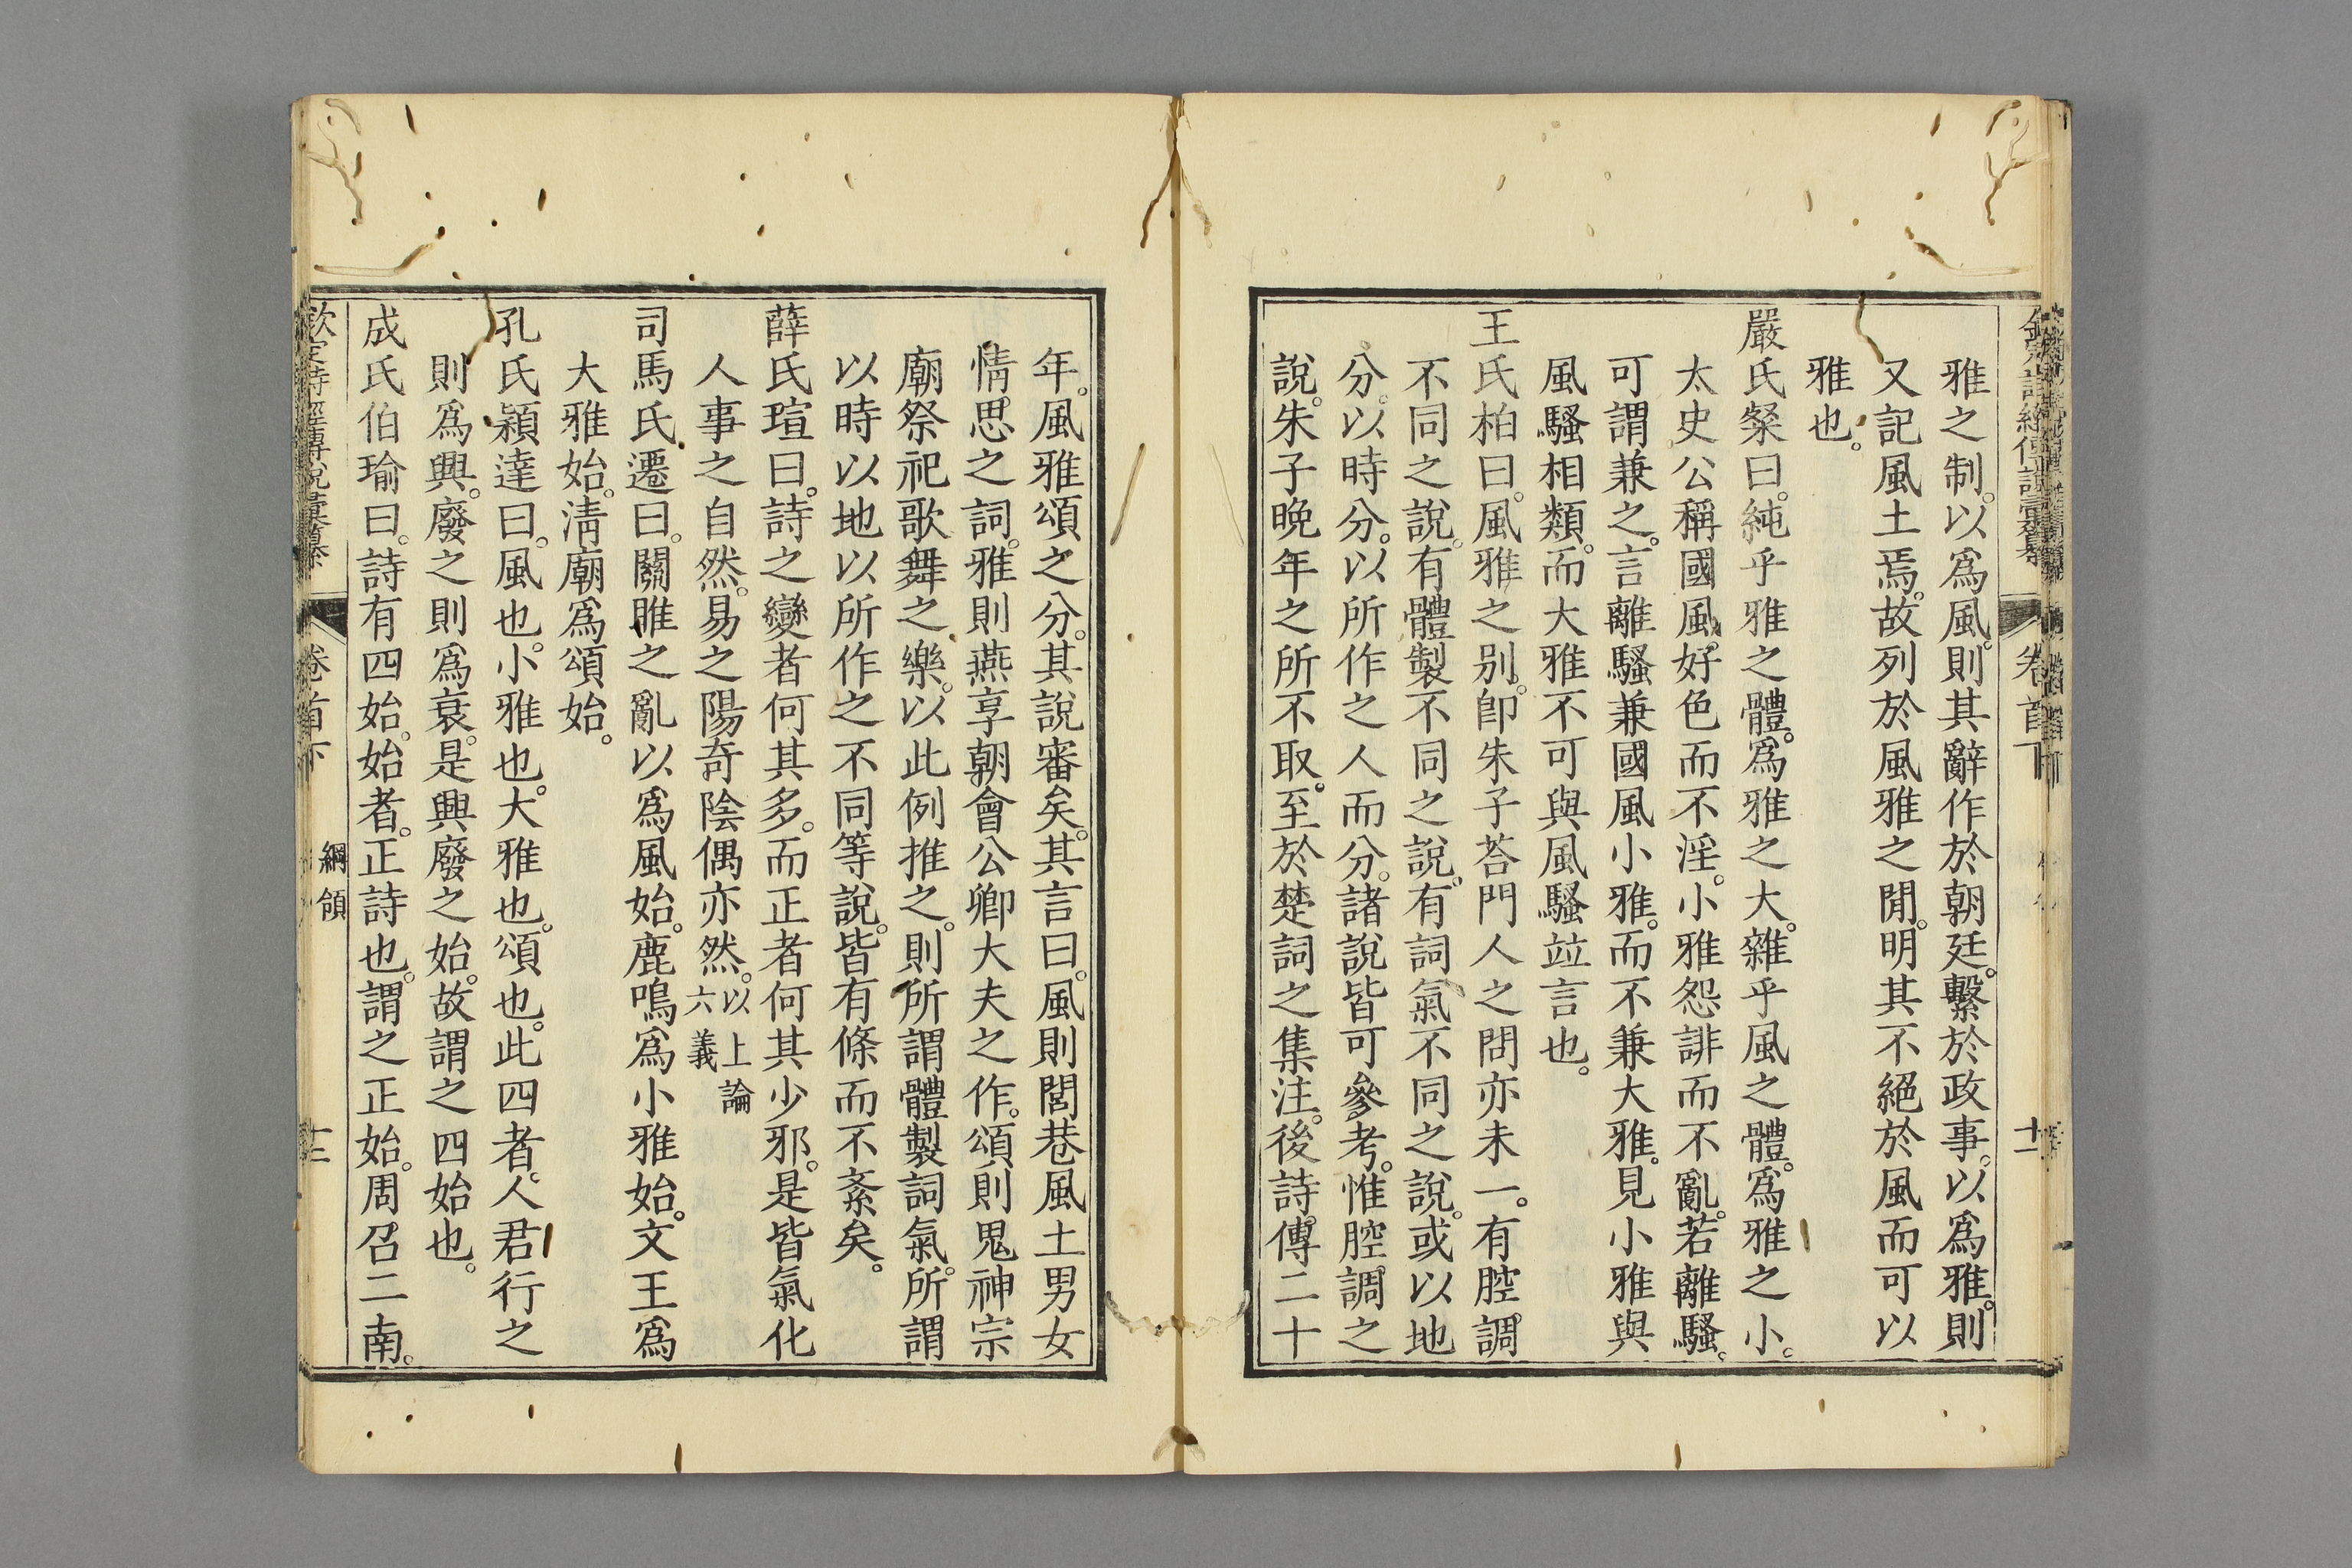 雅之制。以爲風。則其辭作於朝廷。繫於政事。以爲雅。則
又記風土焉。故列於風雅之閒。明其不絕於風而可以
雅也。
嚴氏粲曰。純乎雅之體。爲雅之大。雜乎風之體。爲雅之小。
太史公稱國風。好色而不淫。小雅怨誹而不亂。若離騷。
可謂兼之。言離騷兼國風小雅。而不兼大雅。見小雅與
風騷相類。而大雅不可與風騷竝言也。
王氏柏曰。風雅之別。卽朱子荅門人之問亦未一。有腔調
不同之說。有體製不同之說。有詞氣不同之說。或以地
分。以時分。以所作之人而分。諸說皆可參考。惟腔調之
說。朱子晚年之所不取。至於楚詞之集注。後詩傳二十
年。風雅頌之分。其說審矣。其言曰。風則閭巷風土男女
情思之詞。雅則燕享朝會公卿大夫之作。頌則鬼神宗
廟祭祀歌舞之樂。以此例推之。則所謂體製詞氣。所謂
以時以地以所作之不同等說。皆有條而不紊矣。
薛氏瑄曰。詩之變者何其多。而正者何其少邪。是皆氣化
人事之自然。易之陽奇陰偶亦然。以上論六義
司馬氏遷曰。關雎之亂以爲風始。鹿鳴爲小雅始。文王爲
大雅始。淸廟爲頌始。
孔氏穎達曰。風也。小雅也。大雅也。頌也。此四者。人君行之
則爲興。廢之則爲衰。是興廢之始。故謂之四始也。
成氏伯瑜曰。詩有四始。始者。正詩也。謂之正始。周召二南。
欽定詩經傳說彙纂 卷首下 綱領 十二